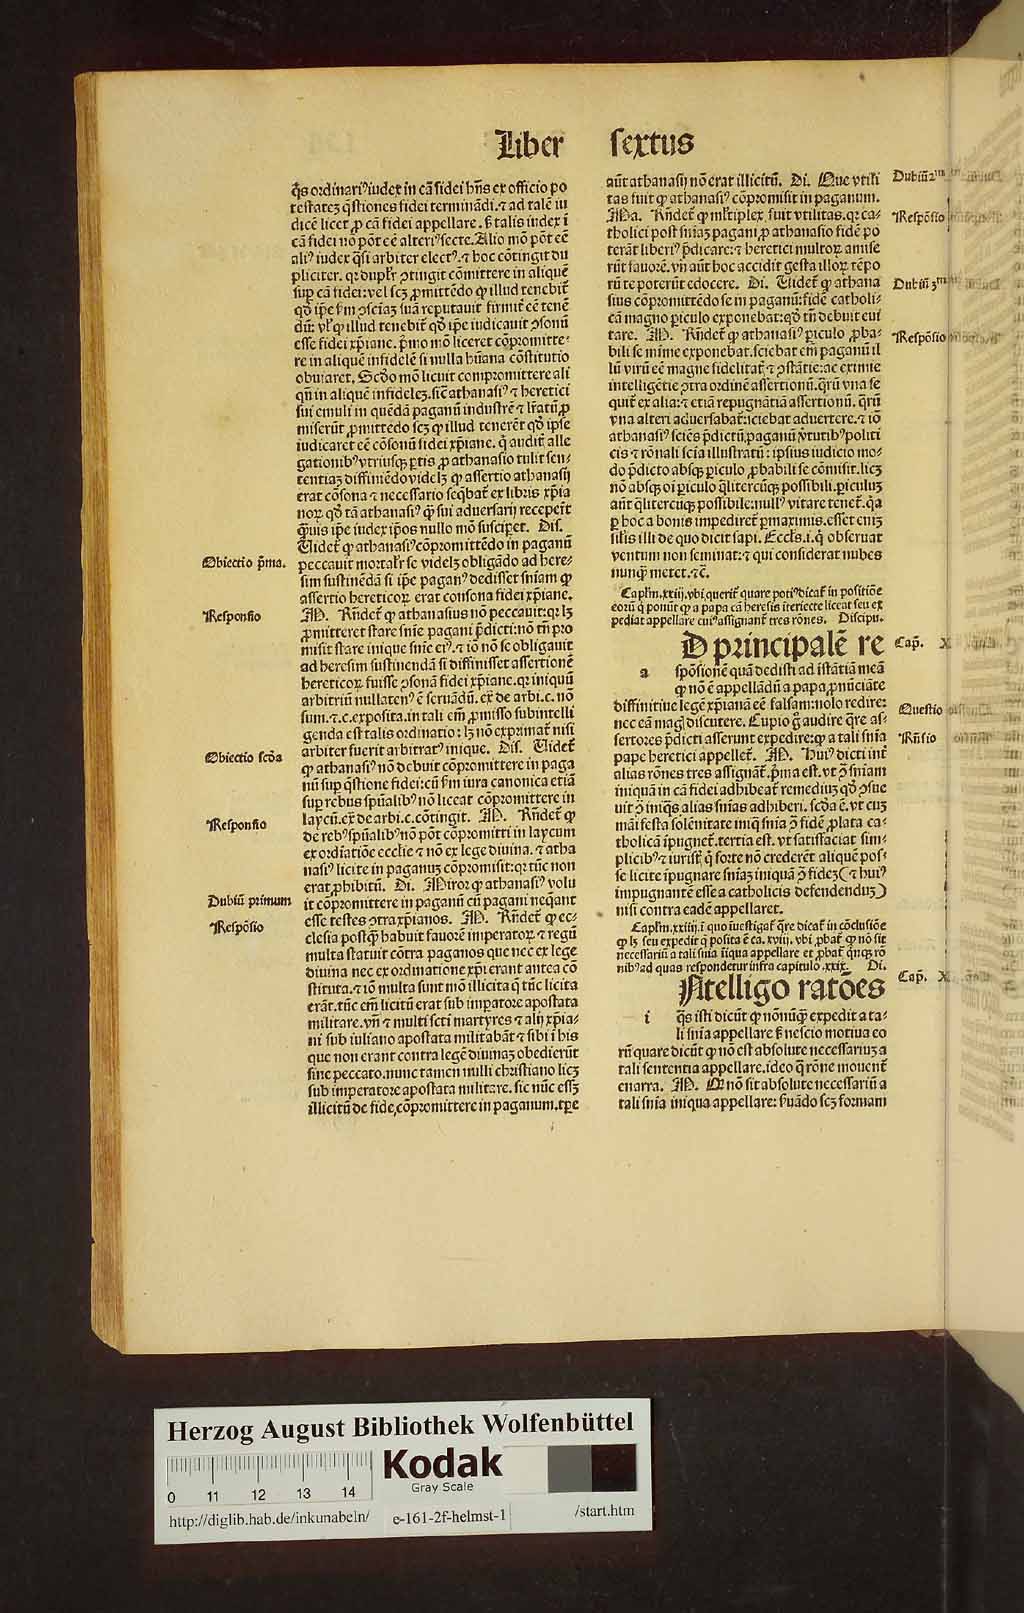 Liber sextus
q̃s ordinariꝰ iudex in cā fidei hñs ex officio po
testateȝ q̃stiones fidei terminãdi. ⁊ ad talē iu
dicē licet ꝓ cā fidei appellare. ſꝫ talis iudex ī
cā fidei nō pōt eē alteriꝰ secte. Alio mō pōt eē
aliꝰ iudex q̃si arbiter electꝰ. ⁊ hoc cōtingit du
pliciter. qꝛ duplr̄ ↄtingit cōmittere in aliquē
suꝑ cā fidei: vel scȝ ꝓmittēdo ꝙ illud tenebit̄
qd̓ ip̄e ẜm ↄsciaȝ suā reputauit firmit̄ eē tenē
dū: vl̓ ꝙ illud tenebit̄ qd̓ ip̄e iudicauit ↄsonū
esse fidei xp̄iane. p̄mo mō liceret cōpromitte-
re in aliquē infidelē si nulla hūana cōstitutio
obuiaret. Scd̓o mō licuit compromittere ali
qñ in aliquē infideleȝ. sic̄ athanasiꝰ ⁊ heretici
sui emuli in quēdā paganū industrē ⁊ lr̄atū ꝓ
miserūt ꝓmittēdo scȝ ꝙ illud tenerēt qd̓ ip̄e
iudicaret eē cōsonū fidei xp̄iane. q̇ audit̄ alle
gationibꝰ vtriusqꝫ ꝑtis ꝓ athanasio tulit sen-
tentiaȝ diffiniēdo videlȝ ꝙ assertio athanasij
erat cōsona ⁊ necessario seq̄bat̄ ex libris xp̄ia
noꝝ qd̓ tā athanasiꝰ q̃ȝ sui aduersarij receper̄t
q̃ȝuis ip̄e iudex ip̄os nullo mō suscipet. Dis.
Uidet̄ ꝙ athanasiꝰ cōpromittēdo in paganū
peccauit mortalr̄ se videlȝ obligādo ad here-
sim sustinēdā si ip̄e paganꝰ dedisset sniam ꝙ
assertio hereticoꝝ erat consona fidei xp̄iane.
M. Rñdet̄ ꝙ athanasius nō peccauit: qꝛ lȝ
ꝓmitteret stare snie pagani p̄dicti: nō tñ pro
misit stare inique snie eiꝰ. ⁊ iō nō se obligauit
ad heresim sustinendā si diffinisset assertionē
hereticoꝝ fuisse ↄsonā fidei xp̄iane. qꝛ iniquū
arbitriū nullatenꝰ ē seruādū. ex̄ de arbi. c. nō
sum. ⁊ c. exposita. in tali em̄ ꝓmisso subintelli
genda est talis ordinatio: lȝ nō exprimat̄ nisi
arbiter fuerit arbitratꝰ inique. Dis. Uidet̄
ꝙ athanasiꝰ nō debuit cōpromittere in paga
nū suꝑ q̃stione fidei: cū ẜm iura canonica etiā
suꝑ rebus spūalibꝰ nō liceat cōpromittere in
laycū. ex̄ de arbi. c. cōtingit. M. Rñdet̄ ꝙ
de rebꝰ spūalibꝰ nō pōt cōpromitti in laycum
ex ordīatiōe ecclie ⁊ nō ex lege diuina. ⁊ atha
nasiꝰ licite in paganuȝ cōpromisit: qꝛ tūc non
erat ꝓhibitū. Di. Miror ꝙ athanasiꝰ volu
it cōpromittere in paganū cū pagani neq̃ant
esse testes ↄtra xp̄ianos. M. Rñdet̄ ꝙ ec-
clesia postq̃ȝ habuit fauorē imperatoꝝ ⁊ regū
multa statuit cōtra paganos que nec ex lege
diuina nec ex ordinatione xp̄i erant antea cō
stituta. ⁊ iō multa sunt mō illicita q̄ tūc licita
erāt. tūc em̄ licitū erat sub impatore apostata
militare. vñ ⁊ multi scti martyres ⁊ alij xp̄ia-
ni sub iuliano apostata militabāt ⁊ sibi ī his
que non erant contra legē diuinaȝ obedierūt
sine peccato. nunc tamen nulli christiano licȝ
sub imperatore apostata militare. sic nūc essȝ
illicitū de fide cōpromittere in paganum. tꝑe
Obiectio p̄ma.
Responsio
Obiectio scd̓a
Responsio
Dubiū primum
Respōsio
aūt athanasij nō erat illicitū. Di. Que vtili
tas fuit ꝙ athanasiꝰ cōpromisit in paganum.
Ma. Rñdet̄ ꝙ ml̓tiplex fuit vtilitas. qꝛ ca-
tholici post sniaȝ pagani ꝓ athanasio fidē po
terāt liberiꝰ p̄dicare: ⁊ heretici multoꝝ amise
rūt fauorē. vñ aūt hoc accidit gesta illoꝝ tēpo
rū te poterūt edocere. Di. Uidet̄ ꝙ athana
sius cōpromittēdo se in paganū: fidē catholi-
cā magno ꝑiculo exponebat: qd̓ tñ debuit eui
tare. M. Rñdet̄ ꝙ athanasiꝰ ꝑiculo ꝓba-
bili se mīme exponebat. sciebat em̄ paganū il
lū virū eē magne fidelitat̄ ⁊ ↄstātie: ac eximie
intelligētie ↄtra ordinē assertionū. q̄rū vna se
quit̄ ex alia: ⁊ etiā repugnātiā assertionū. q̄rū
vna alteri aduersabat̄: sciebat aduertere. ⁊ iō
athanasiꝰ sciēs p̄dictū paganū v̓tutibꝰ politi
cis ⁊ rōnali scīa illustratū: ipsius iudicio mo-
do p̄dicto absqꝫ ꝑiculo ꝓbabili se cōmisit. licȝ
nō absqꝫ oī ꝑiculo q̃litercūqꝫ possibili. ꝑiculuȝ
aūt q̃litercūqꝫ possibile: nullꝰ vitare tenet̄. q̄a
ꝑ hoc a bonis impediret̄ ꝑmaximis. esset eniȝ
sil̓is illi de quo dicit sapi. Eccl̓s. i. q̇ obseruat
ventum non seminat: ⁊ qui considerat nubes
nunq̃ȝ metet. ⁊c̄.
Caplm̄. xxiij. vbi querit̄ quare potiꝰ dicat̄ in positiōe
eorū q̇ ponūt ꝙ a papa cā heresis īteriecte liceat seu ex
pediat appellare cuiꝰ assignant̄ tres rōnes. Discipu.
a
D principalē re
spōsionē quā dedisti ad īstātiā meā
ꝙ nō ē appellādū a papa ꝓnūciāte
diffinitiue legē xp̄ianā eē falsam: nolo redire:
nec eā magꝭ discutere. Cupio g̊ audire q̃re as-
sertores p̄dicti asserunt expedire: ꝙ a tali snīa
pape heretici appellet̄. M. Huiꝰ dicti int̄
alias rōnes tres assignāt̄. p̄ma est. vt ↄ̄ sniam
iniquā in cā fidei adhibeat̄ remediuȝ qd̓ ↄsue
uit ↄ̄ iniq̄s alias snīas adhiberi. scd̓a ē. vt cuȝ
māifesta solēnitate iniq̄ snīa ↄ̄ fidē ꝓlata ca-
tholicā īpugnet̄. tertia est. vt satisfaciat sim-
plicibꝰ ⁊ iurist̄ q̇ forte nō crederēt aliquē pos-
se licite īpugnare snīaȝ iniquā ↄ̄ fideȝ (⁊ huiꝰ
impugnantē esse a catholicis defendenduȝ)
nisi contra eadē appellaret.
Caplm̄. xxiiij. ī quo īuestigat̄ q̃re dicat̄ in cōclusiōe
ꝙ lȝ seu expedit q̄ posita ē ca. xviij. vbi ꝓbat̄ ꝙ nō sit
necessariū a tali snīa īiqua appellare et ꝓbat̄ q̇nqꝫ rō
nibꝰ ad quas respondetur infra capitulo. xxix. Di.
i
Ntelligo ratōes
q̄s isti dicūt ꝙ nōnūq̃ȝ expedit a ta-
li snīa appellare ſꝫ nescio motiua eo
rū quare dicūt ꝙ nō est absolute necessariuȝ a
tali sententia appellare. ideo q̄ rōne mouent̄
enarra. M. Qꝛ nō sit absolute necessariū a
tali snīa iniqua appellare: ẜuādo scȝ formam
Dubiū 2m
Respōsio
Dubiū 3m
Respōsio
Cap̄.
Questio
Rñsio
Cap̄.
Herzog August Bibliothek Wolfenbüttel
Kodak
Gray Scale
0 11 12 13 14
http://diglib.hab.de/inkunabeln/ e-161-2f-helmst-1 /start.htm